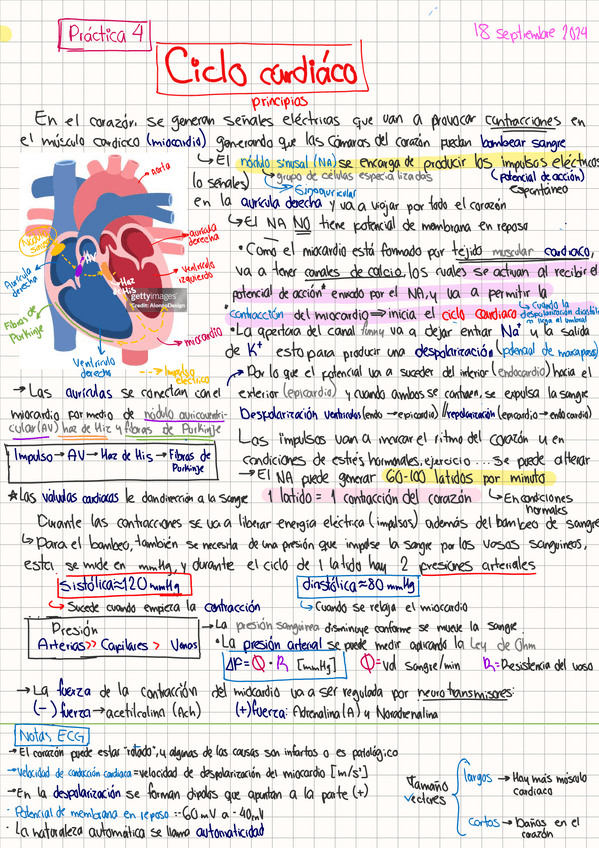 Práctica 4
18 septiembre 2024
Ciclo cardiáco
principios
En el corazón, se generan señales eléctricas que van a provocar contracciones en
el músculo cardíaco (miocardio) generando que las cámaras del corazón puedan bombear sangre
↳ El nódulo sinusal (NA) se encarga de producir los impulsos eléctricos
(o señales) ↳ grupo de células especializadas (potencial de acción)
↳ Sinoauricular espontáneo
en la aurícula derecha y va a viajar por todo el corazón
↳ El NA NO tiene potencial de membrana en reposo
• Como el miocardio está formado por tejido muscular cardiaco,
va a tener canales de calcio, los cuales se actuan al recibir el
potencial de acción* enviado por el NA, y va a permitir la
contracción del miocardio ⇒ inicia el ciclo cardiaco
↳ Cuando la
despolarización diastólica
llega al umbral
• La apertura del canal funny va a dejar entrar Na⁺ y a salida
de K⁺ esto para producir una despolarización (potencial de marcapaso)
↱ Por lo que el potencial va a suceder del interior (endocardio) hacia el
exterior (epicardio) y cuando ambos se contraen, se expulsa la sangre
Despolarización ventriculos (endo → epicardio) // repolarización (epicardio → endocardio)
Los impulsos van a marcar el ritmo del corazón y en
condiciones de estrés hormonales, ejercicio... Se puede alterar
→ El NA puede generar 60-100 latidos por minuto
1 latido = 1 contracción del corazón ↳ En condiciones
normales
aorta
aurícula
derecha
Ventrículo
izquierdo
miocardio
Nodo
sinusal
AV
Haz
His
Aurícula
derecha
Fibras de
Purkinje
Ventrículo
derecho
Impulso
eléctrico
gettyimages
Credit: AlonzoDesign
→ Las aurículas se conectan con el
miocardio por medio de nódulo auriculoventri-
cular (AV) haz de Hiz y fibras de Purkinje
Impulso → AV → Haz de His → Fibras de
Purkinje
* Las valvulas cardiacas le dan dirección a la sangre
Durante las contracciones se va a liberar energía eléctrica (impulsos) además del bambeo de sangre
↳ Para el bambeo, también se necesita de una presión que impulse la sangre por los vasos sanguíneos,
esta, se mide en mmHg, y durante el ciclo de 1 latido hay 2 presiones arteriales
sistólica≈120 mmHg
diastólica≈80 mmHg
↳ Sucede cuando empieza la contracción
↳ Cuando se relaja el miocardio
Presión
Arterias >> Capilares > Venas
→ La presión sanguínea disminuye conforme se mueve la sangre
• La presión arterial se puede medir aplicando la Ley de Ohm
ΔP = Q · R [mmHg] Q = Vol sangre/min R = Resistencia del vaso
→ La fuerza de la contracción del miocardio va a ser regulada por neurotransmisores:
(-) fuerza → acetilcolina (Ach) (+) fuerza: Adrenalina (A) y Noradrenalina
Notas ECG
→ El corazón puede estar "rotado", y algunas de las causas son infartos o es patológico
→ Velocidad de conducción cardiaca = velocidad de despolarización del miocardio [m/s²]
→ En la despolarización se forman dipolos que apuntan a la parte (+)
· Potencial de membrana en reposo :- 60 mV a - 40mV
· La naturaleza automática se llama automaticidad
Tamaño
vectores
largos → Hay más músculo
cardiaco
cortos → Daños en el
corazón